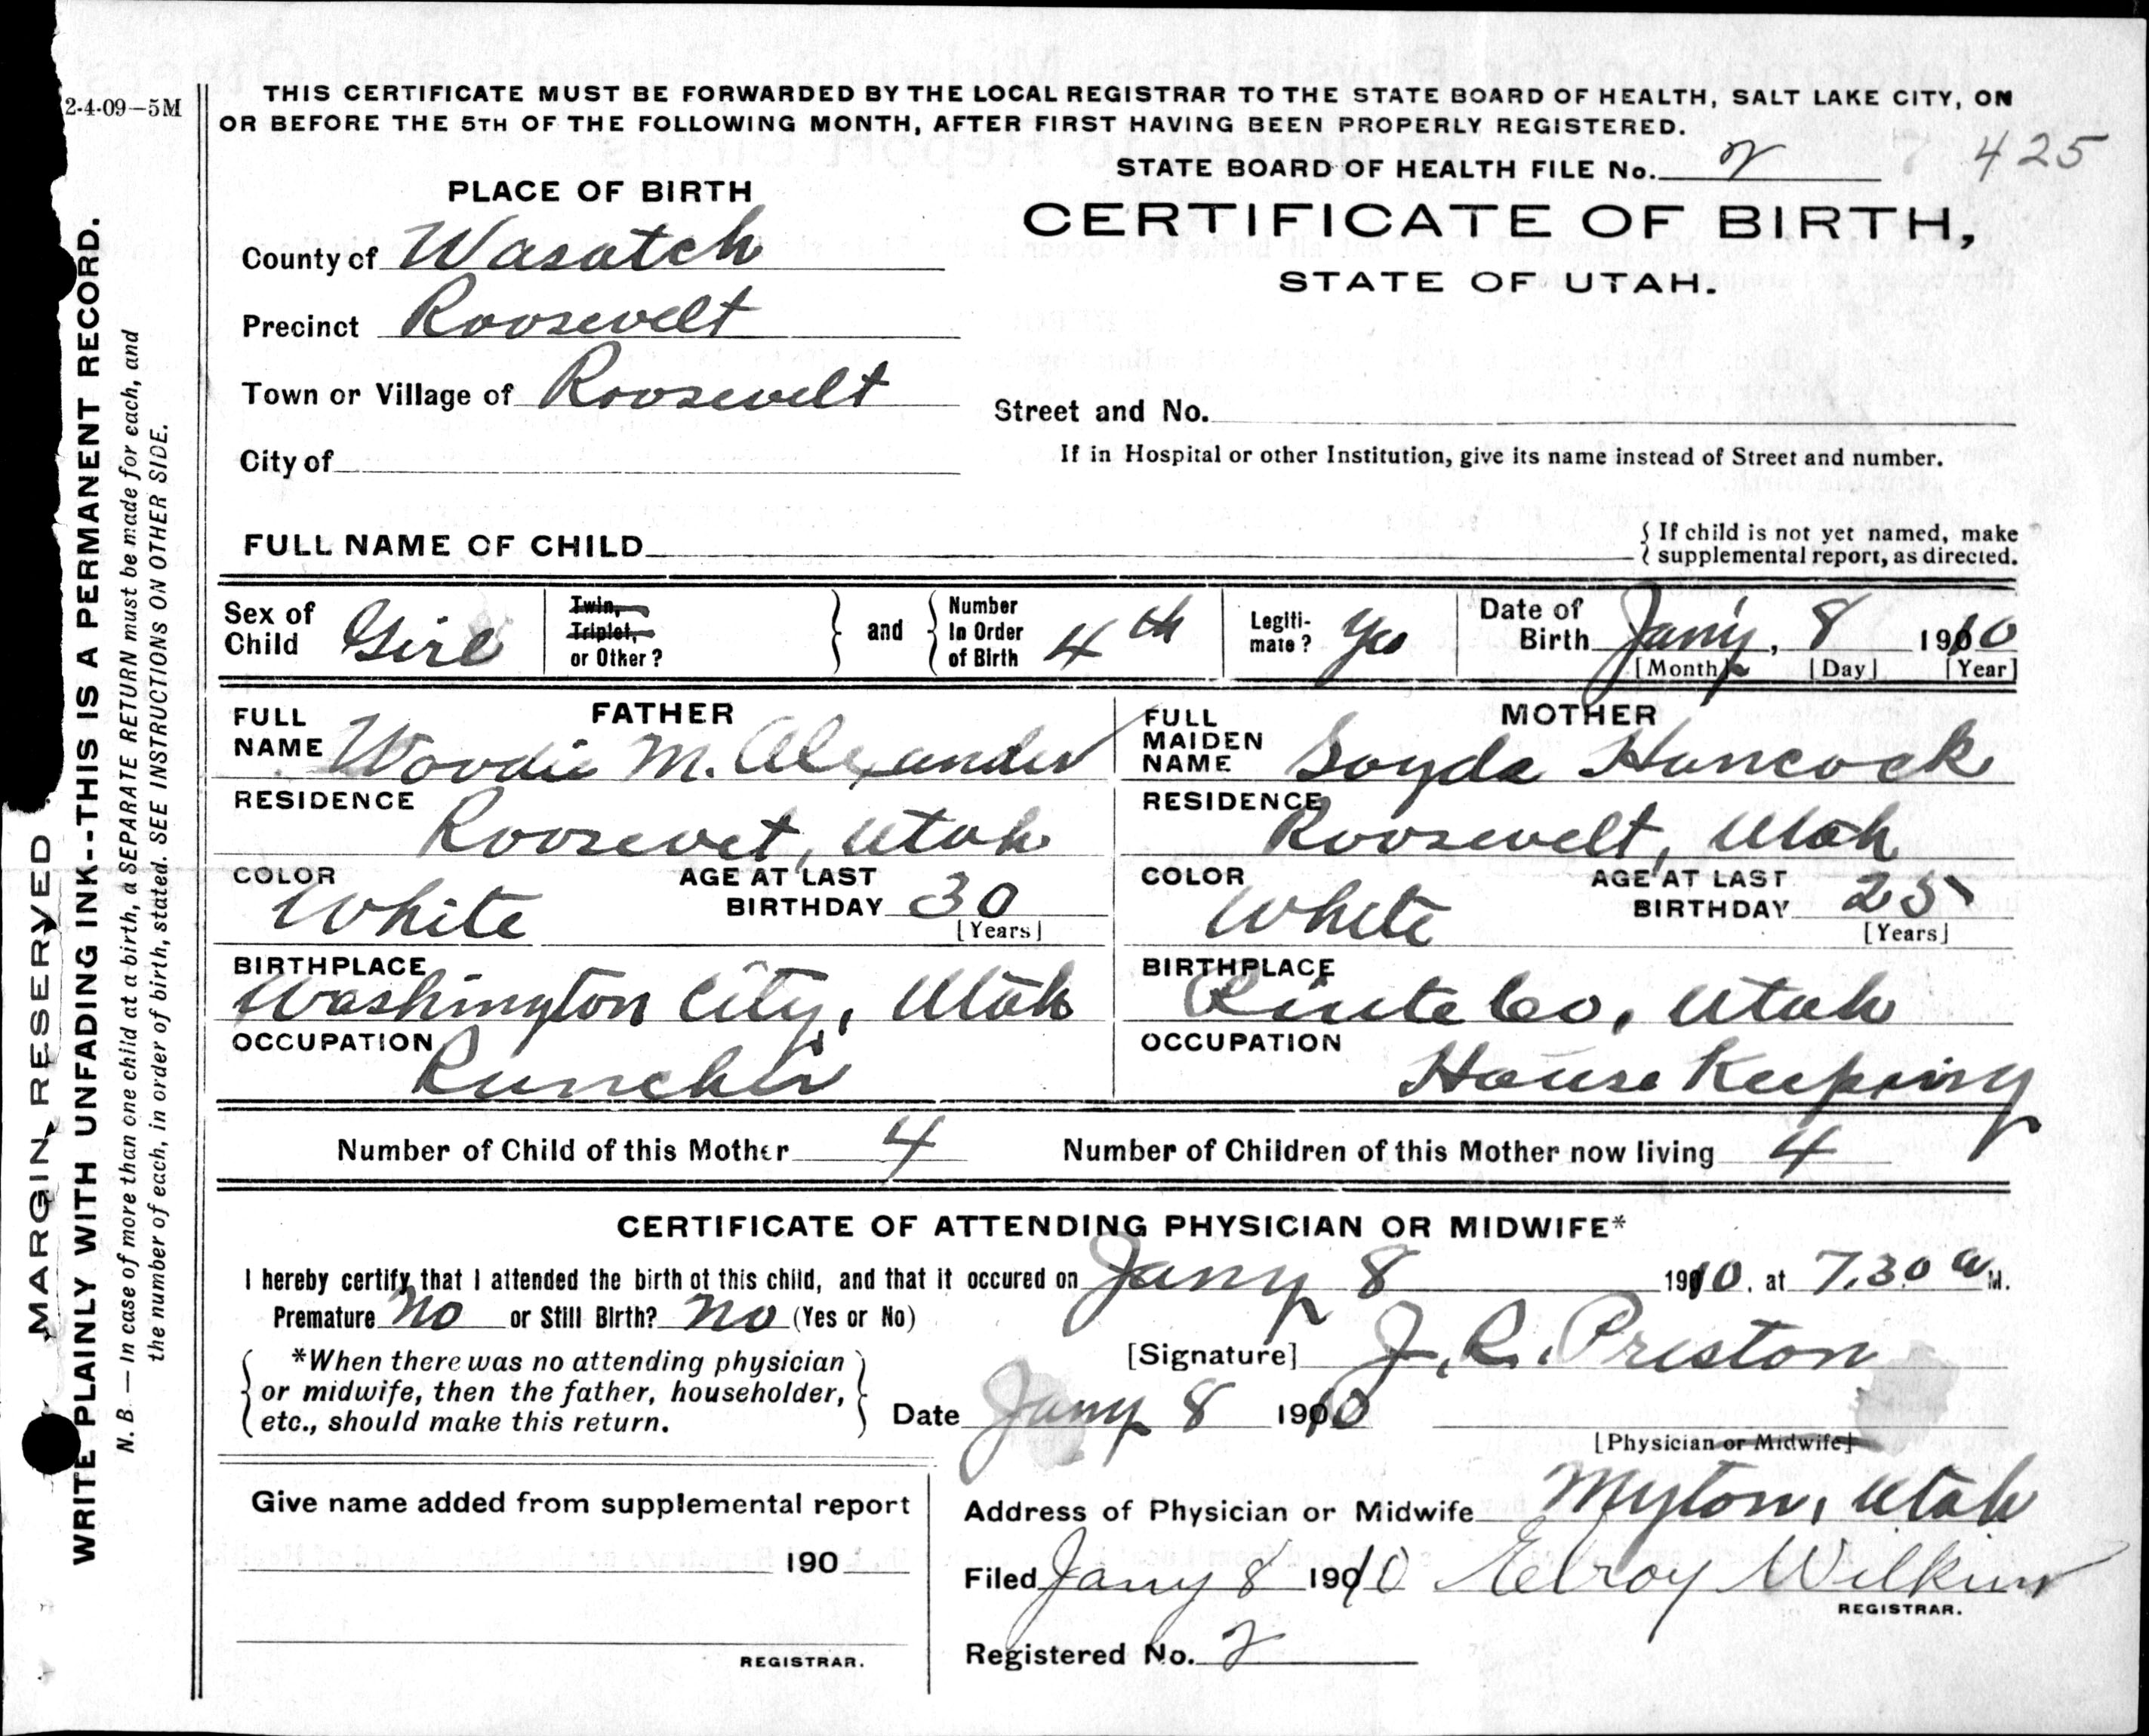 2-4-09—5M
THIS CERTIFICATE MUST BE FORWARDED BY THE LOCAL REGISTRAR TO THE STATE BOARD OF HEALTH, SALT LAKE CITY, ON
OR BEFORE THE 5TH OF THE FOLLOWING MONTH, AFTER FIRST HAVING BEEN PROPERLY REGISTERED.
STATE BOARD OF HEALTH FILE No. 2 425
PLACE OF BIRTH
CERTIFICATE OF BIRTH,
STATE OF UTAH.
County of Wasatch
Precinct Roosevelt
Town or Village of Roosevelt
Street and No.
City of
If in Hospital or other Institution, give its name instead of Street and number.
FULL NAME OF CHILD
{ If child is not yet named, make
supplemental report, as directed.
Sex of Child Girl
Twin, Triplet, or Other?
and
Number In Order of Birth 4th
Legiti-mate? Yes
Date of Birth Jan'y, 8 1910
[Month] [Day] [Year]
FATHER
FULL NAME Woodie M. Alexander
RESIDENCE
Roosevet, Utah
COLOR White AGE AT LAST BIRTHDAY 30
[Years]
BIRTHPLACE
Washington City, Utah
OCCUPATION
Rancher
MOTHER
FULL MAIDEN NAME Hancock
RESIDENCE
Roosevelt, Utah
COLOR White AGE AT LAST BIRTHDAY 25
[Years]
BIRTHPLACE
Piute Co, Utah
OCCUPATION
House Keeping
Number of Child of this Mother 4 Number of Children of this Mother now living 4
CERTIFICATE OF ATTENDING PHYSICIAN OR MIDWIFE*
I hereby certify that I attended the birth of this child, and that it occured on Jany 8 1910, at 7.30 a M.
Premature No or Still Birth? No (Yes or No)
[Signature] J. R. Preston
*When there was no attending physician
or midwife, then the father, householder,
etc., should make this return.
Date Jany 8 1910
[Physician or Midwife]
Give name added from supplemental report
190
REGISTRAR.
Address of Physician or Midwife Myton, Utah
Filed Jany 8 1910 Elroy Wilkins
REGISTRAR.
Registered No. 2
MARGIN RESERVED
WRITE PLAINLY WITH UNFADING INK--THIS IS A PERMANENT RECORD.
N. B. — In case of more than one child at a birth, a SEPARATE RETURN must be made for each, and
the number of each, in order of birth, stated. SEE INSTRUCTIONS ON OTHER SIDE.